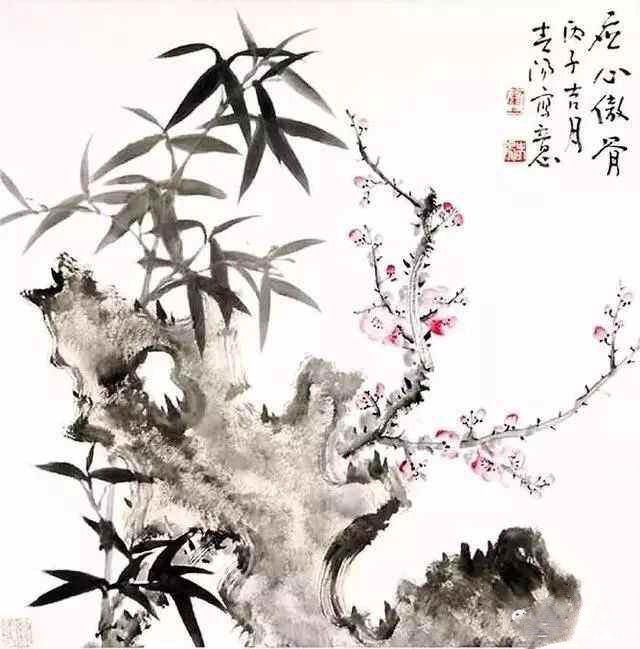 虚心傲骨
丙子吉月
寫意